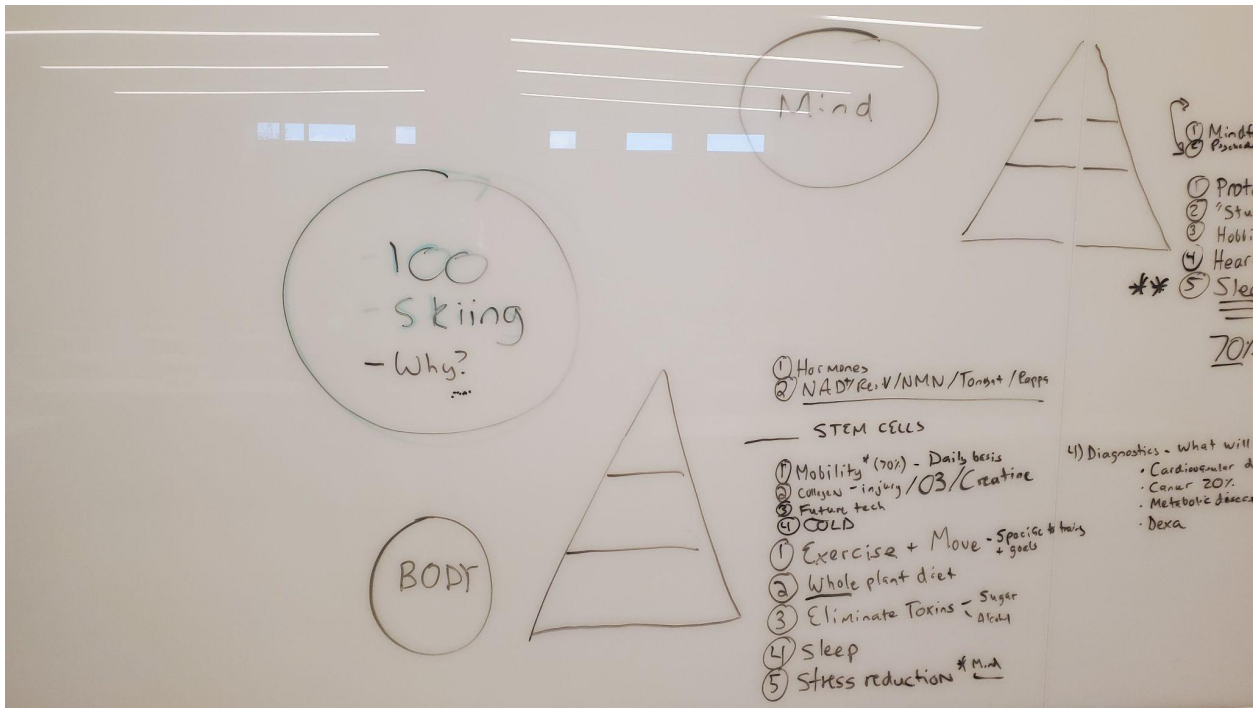 Mind
100
- Skiing
- Why?
BODY
① Hormones
② NAD+/Resv/NMN/Tongat/Rappa
STEM CELLS
① Mobility* (70%) - Daily basis
② Collagen - injury/O3/Creatine
③ Future tech
④ COLD
① Exercise + Move - Specific to training
+ goals
② Whole plant diet
③ Eliminate Toxins - Sugar
- Alcohol
④ Sleep
⑤ Stress reduction * Mind
① Mindf
②
① Prot
② "Stu
③ Hobbi
④ Hear
** ⑤ Slee
70%
4) Diagnostics - What will
· Cardiovascular d
· Cancer 20%
· Metabolic disea
· Dexa